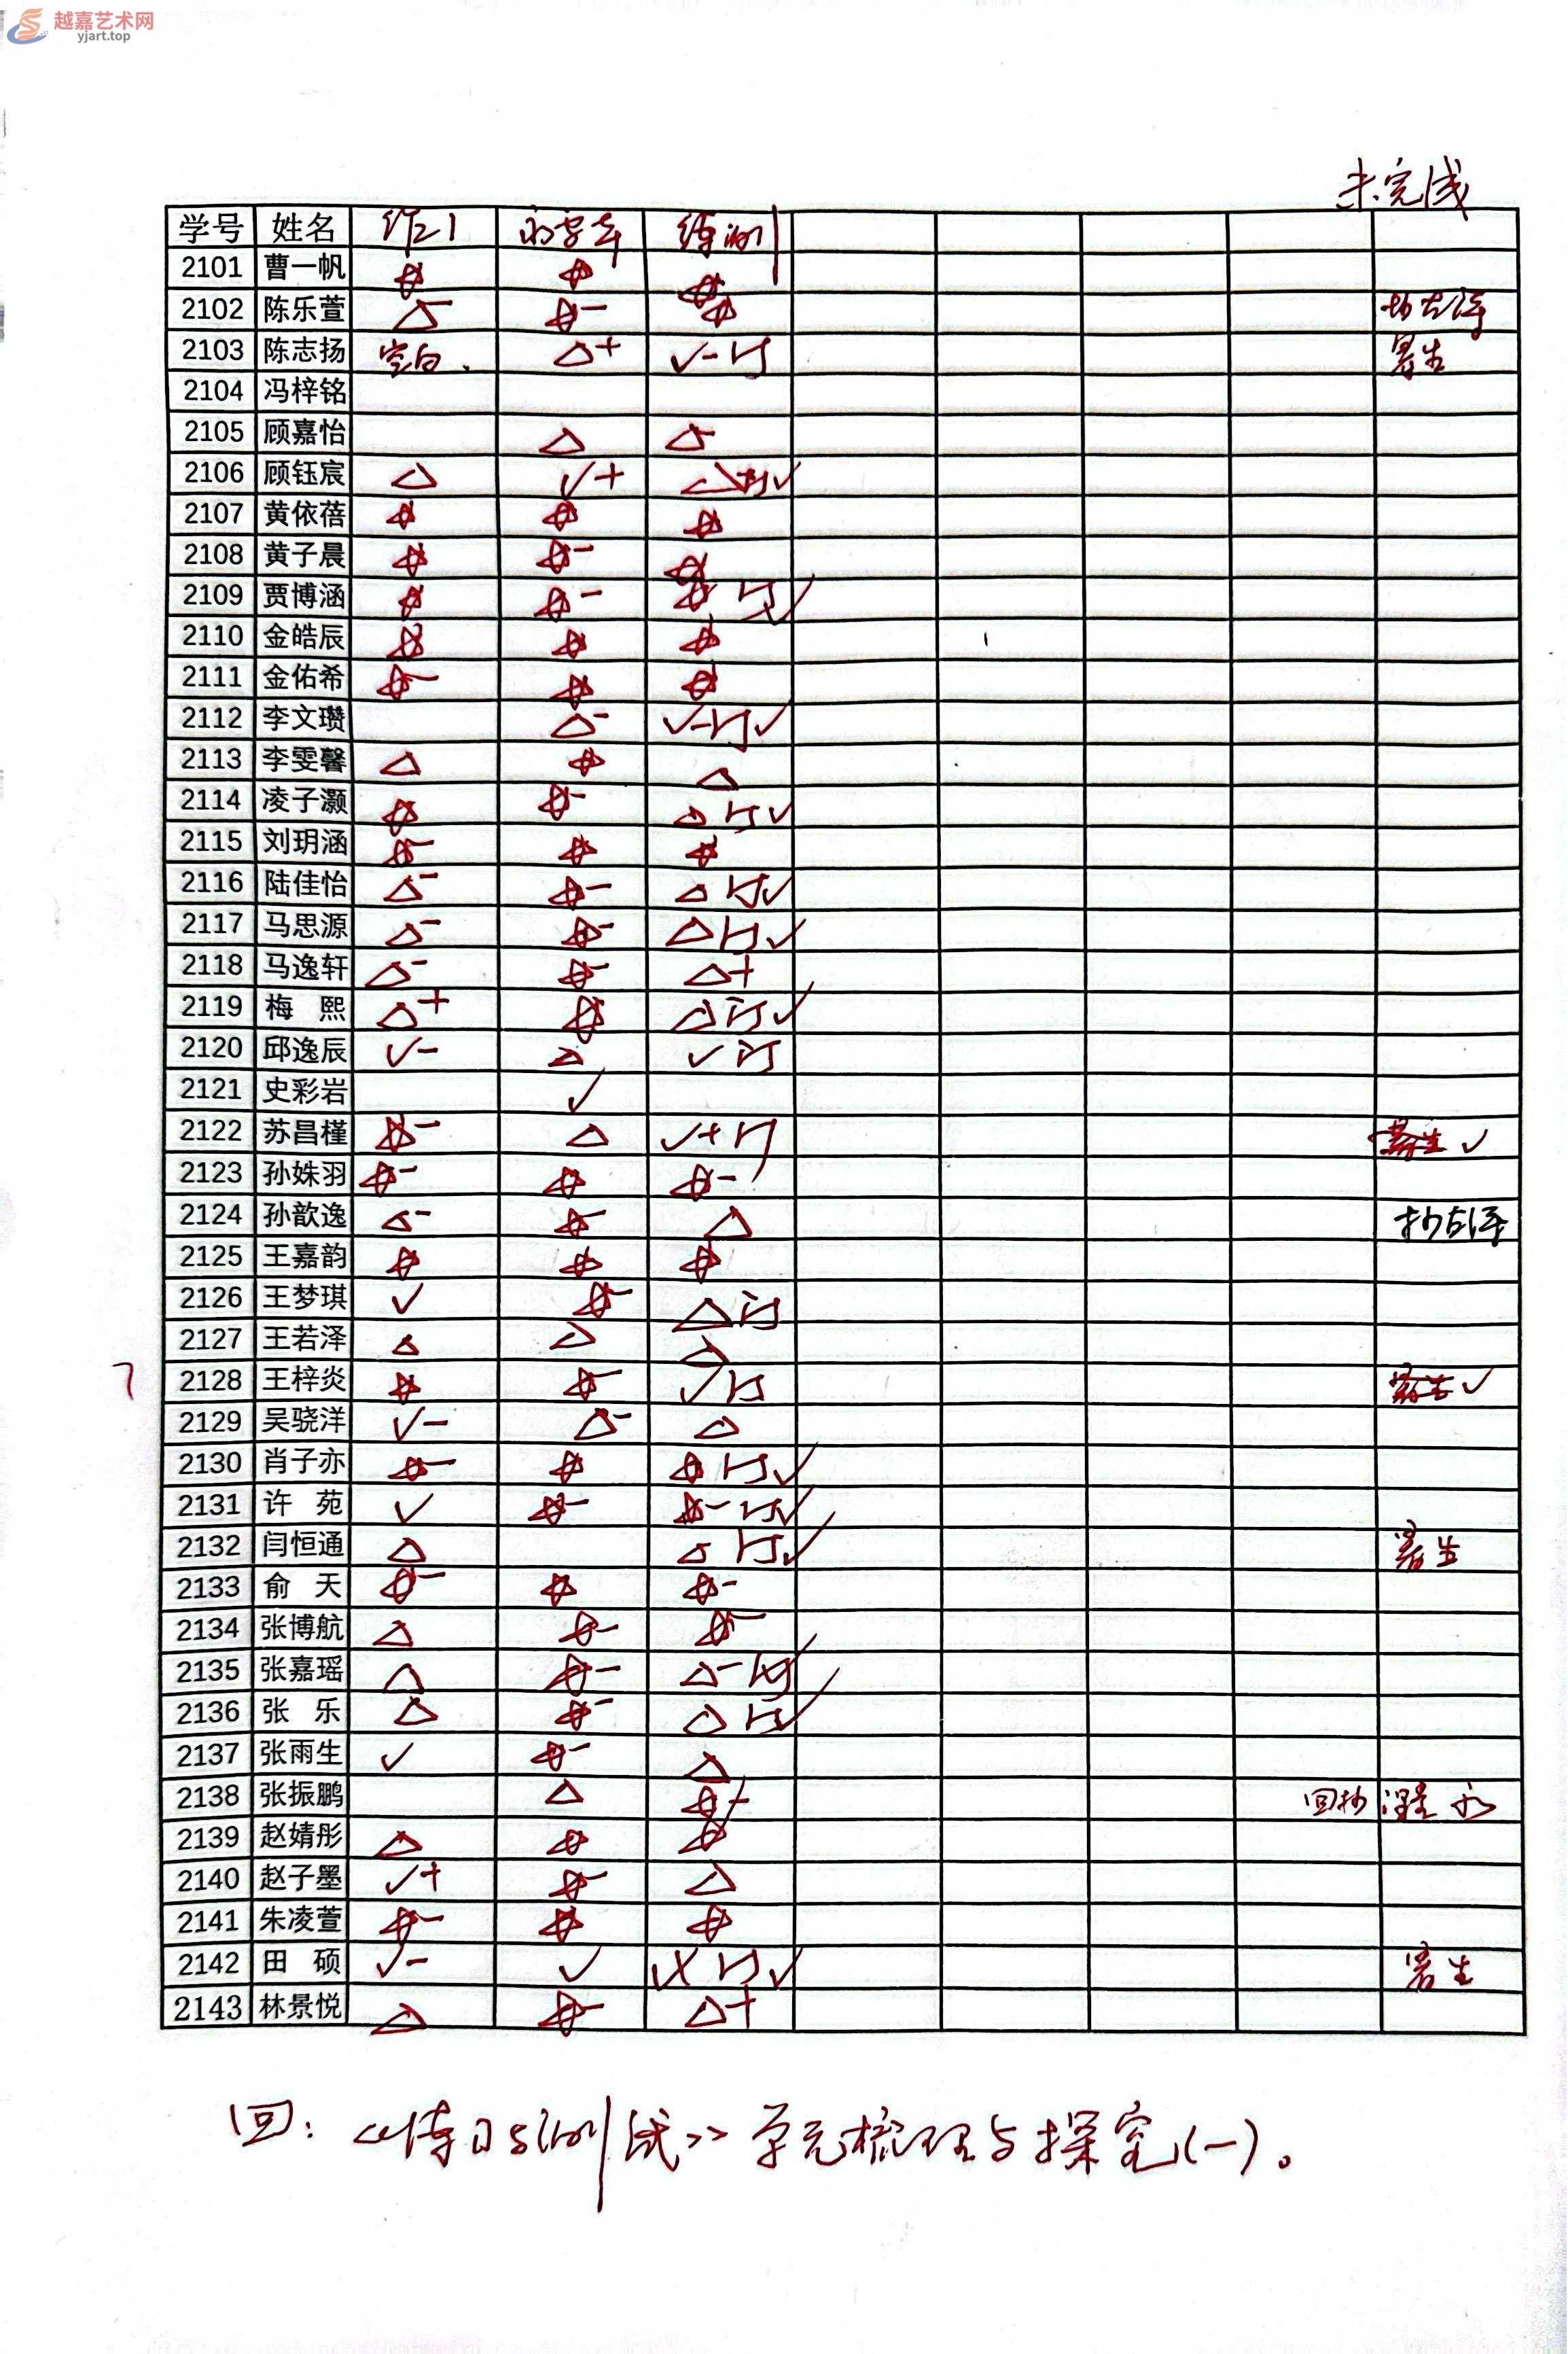 越嘉艺术网
yjart.top
未完成
学号 姓名 作21 练测
2101 曹一帆
2102 陈乐萱 -
2103 陈志扬 空白. △+ ✓- 订
2104 冯梓铭
2105 顾嘉怡 △ △-
2106 顾钰宸 △ ✓+ △ 订✓
2107 黄依蓓 ☆ ☆ ☆
2108 黄子晨 ☆ ☆- ☆
2109 贾博涵 ☆ ☆- ☆ 订✓
2110 金皓辰 ☆ ☆ ☆
2111 金佑希 ☆- ☆ ☆
2112 李文瓒 △- ✓-订✓
2113 李雯馨 △ ☆ △
2114 凌子灏 ☆ ☆- △ 订✓
2115 刘玥涵 ☆- ☆ ☆
2116 陆佳怡 △- ☆- △ 订✓
2117 马思源 △- ☆- △ 订✓
2118 马逸轩 △- ☆- △+
2119 梅 熙 △+ ☆ △ 订✓
2120 邱逸辰 ✓- △ ✓ 订
2121 史彩岩 ✓
2122 苏昌槿 ☆- △ ✓+ 订 ✓
2123 孙姝羽 ☆- ☆ ☆-
2124 孙歆逸 △- ☆- △
2125 王嘉韵 ☆ ☆ ☆
2126 王梦琪 ✓ ☆- △ 订
2127 王若泽 △ △ △
2128 王梓炎 ☆ ☆- ✓ 订 ✓
2129 吴骁洋 ✓- △- △
2130 肖子亦 ☆- ☆ ☆ 订✓
2131 许 苑 ✓ ☆- ☆- 订✓
2132 闫恒通 △ △ 订✓
2133 俞 天 ☆- ☆ ☆-
2134 张博航 △ ☆- ☆-
2135 张嘉瑶 △ ☆- △- 订✓
2136 张 乐 △ ☆- △ 订✓
2137 张雨生 ✓ ☆- △
2138 张振鹏 △ ☆-
2139 赵婧彤 △ ☆ ☆
2140 赵子墨 ✓+ ☆- △
2141 朱凌萱 ☆- ☆ ☆
2142 田 硕 ✓- ✓ 订✓
2143 林景悦 △ ☆- △+
回: 单元梳理与探究(一)。